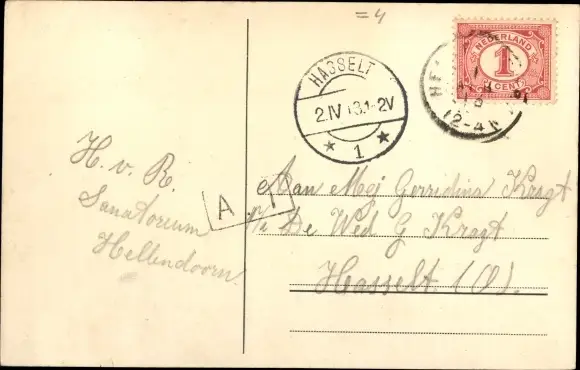 =4
NEDERLAND
1
CENT
HASSELT
2.IV 13.1-2V
1
12-4N
H. v. R.
Sanatorium
Hellendoorn.
A
Aan Mej Gerridina Kragt
p/a De Wed G Kragt
Hasselt. (O).